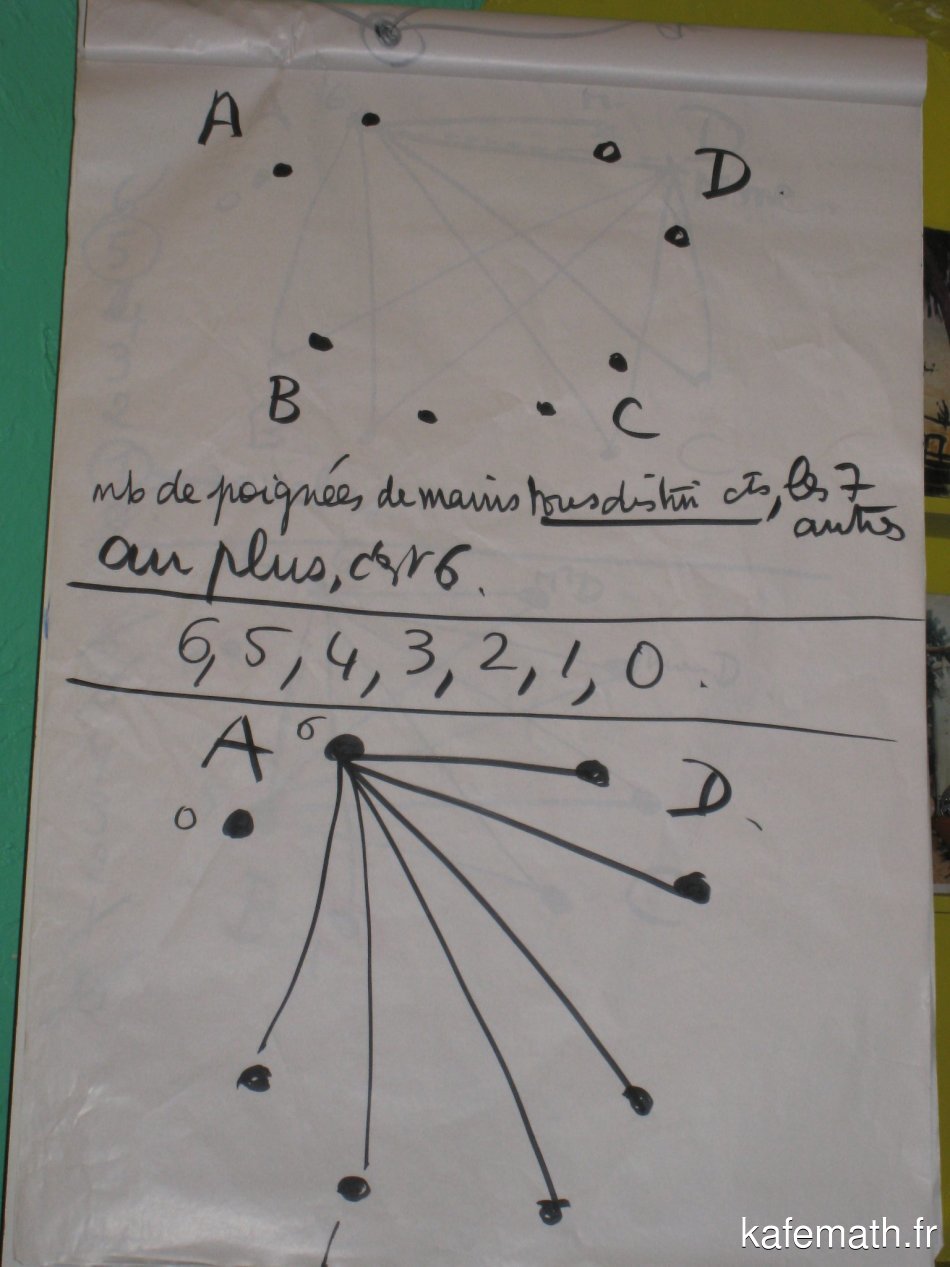 A
D
B
C
nb de poignées de mains tous distincts, les 7
autres
au plus, c'est 6.
6, 5, 4, 3, 2, 1, 0.
A 6
D
0
kafemath.fr